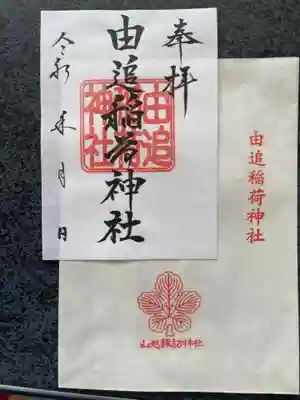 奉拝
由追稲荷神社
由追稲荷神社
令和 年 月 日
由追稲荷神社
山越諏訪神社